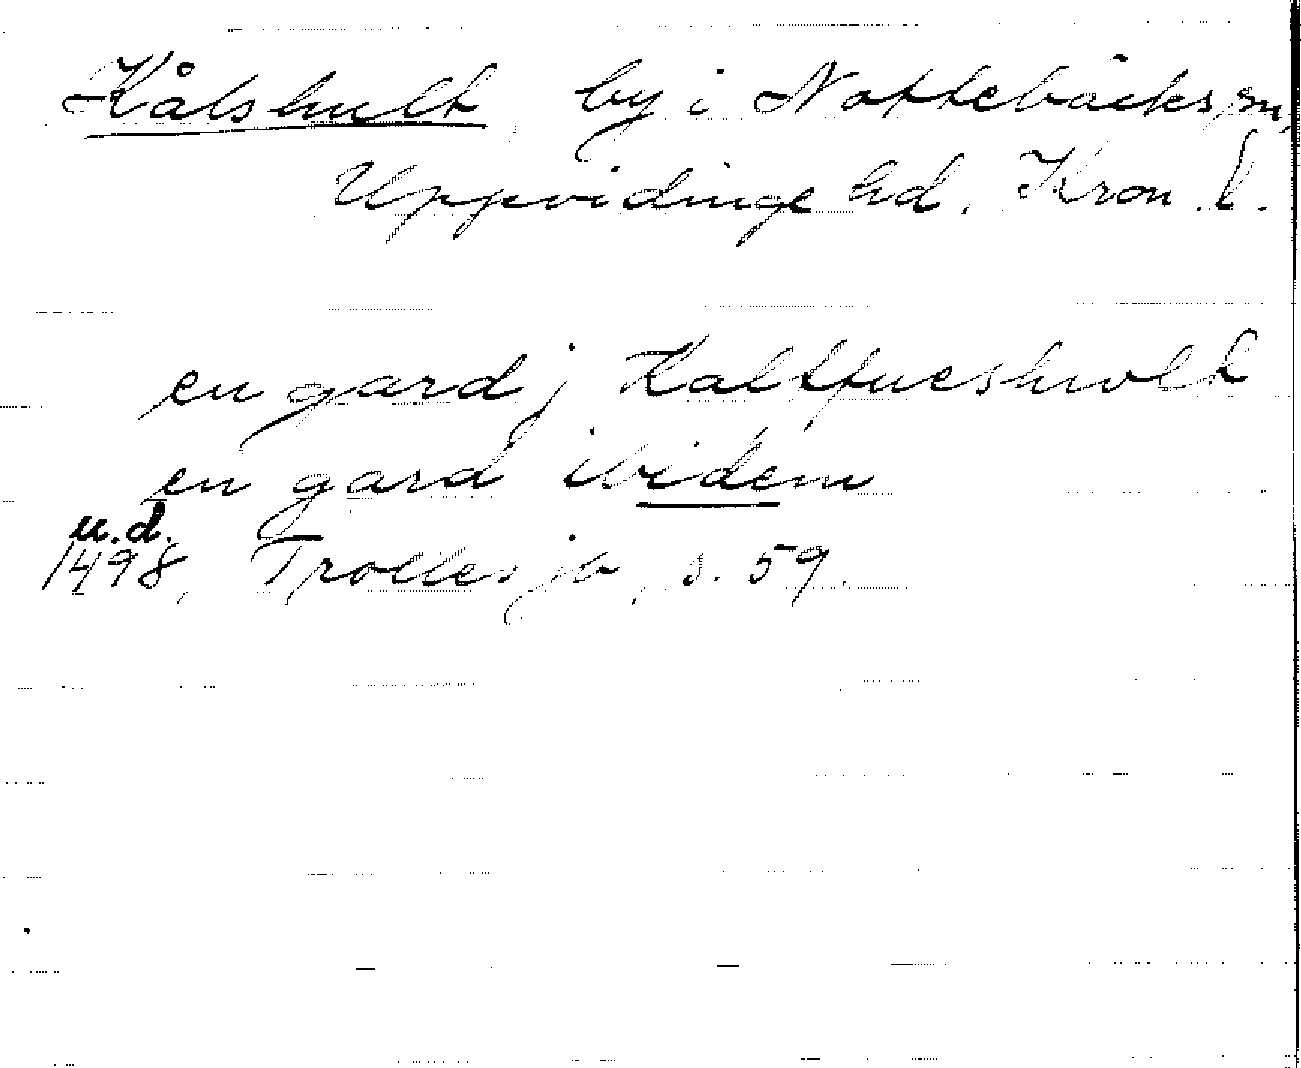 Kålshult, by i Nottebäcks sn,
Uppvidinge hd. Kron. l.
en gard j Kaltfueshwlt
en gard ibidem
u.d.
1498, Trolles jb, s. 59.